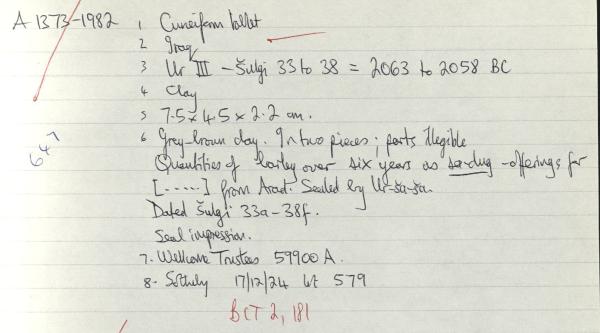 A 1373-1982 1 Cuneiform tablet
2 Iraq
3 Ur III - Šulgi 33 to 38 = 2063 to 2058 BC
4 Clay
5 7.5 x 4.5 x 2.2 cm.
6 Grey-brown clay. In two pieces; parts illegible
Quantities of barley over six years as sa-dug-offerings for
[-----] from Arad. Sealed by Ur-ša-ša.
Dated Šulgi 33a-38f.
Seal impression.
7. Wellcome Trustees 59900 A.
8. Sotheby 17/12/24 lot 579
BCT 2, 181
647